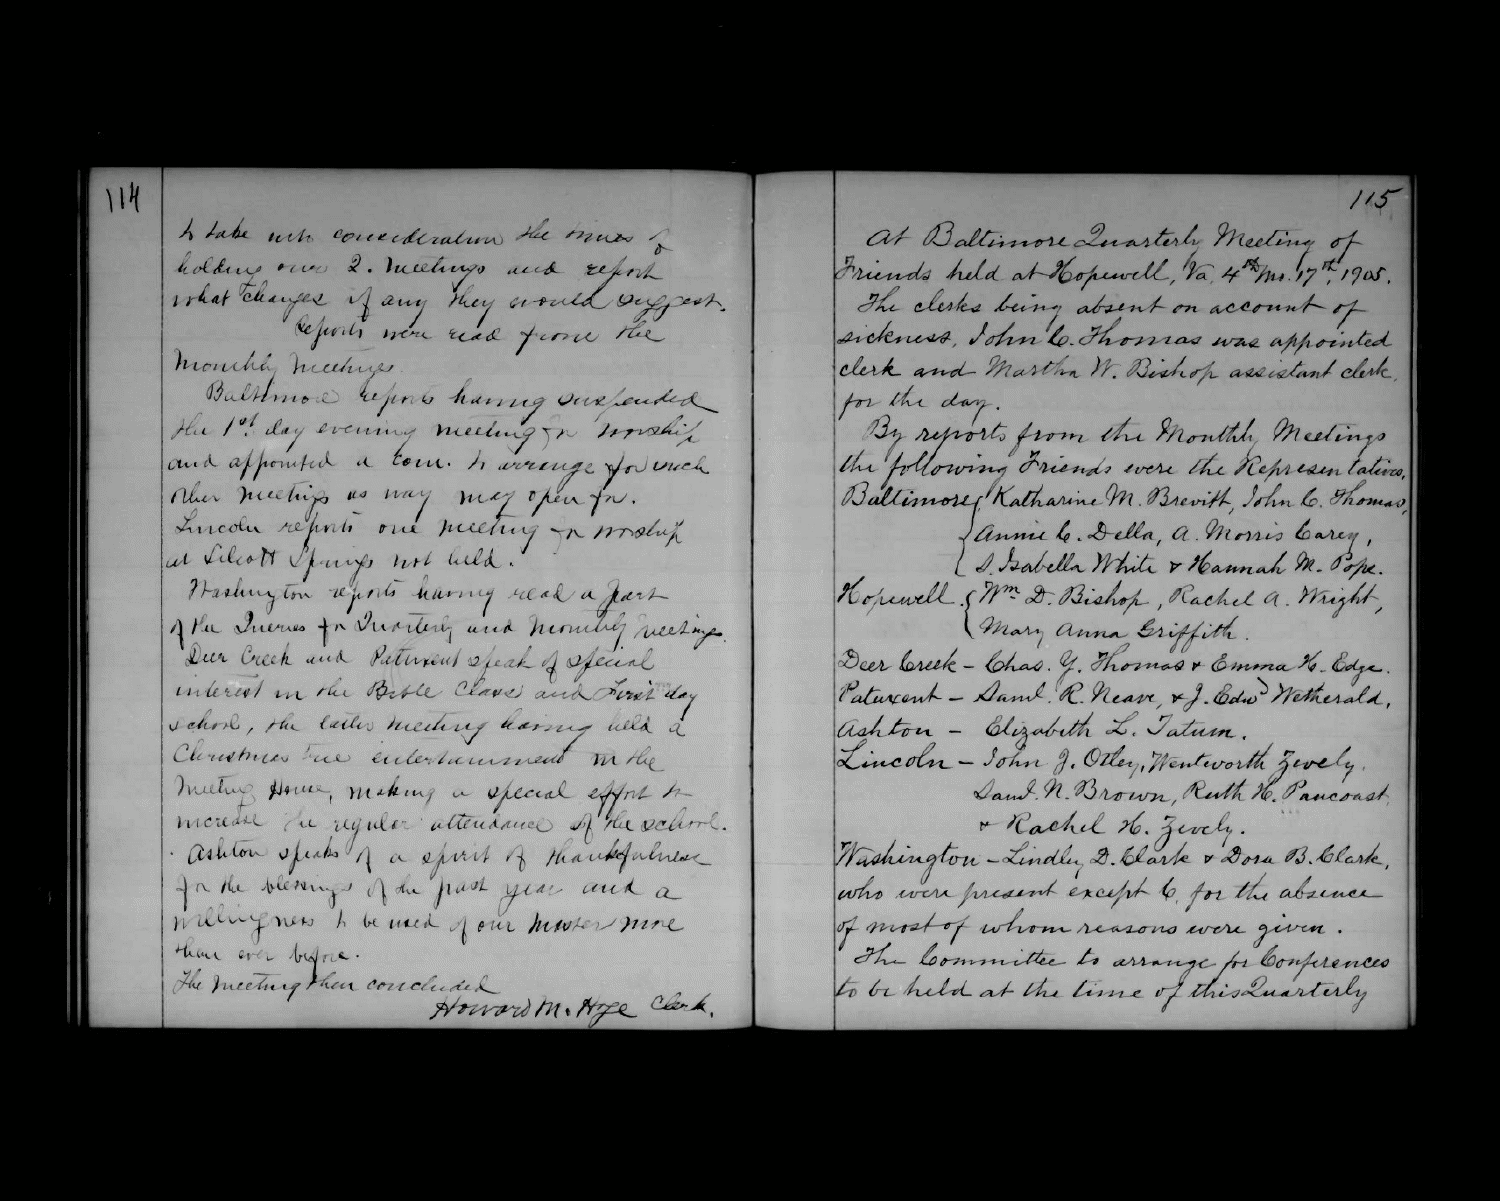 114
to take into consideration the times of
holding our 2. Meetings and report
what changes if any they would suggest.
Reports were read from the
Monthly Meetings.
Baltimore reports having suspended
the 1st day evening meeting for worship
and appointed a com. to arrange for such
other meetings as way may open for.
Lincoln reports one meeting for worship
at Silcott Springs not held.
Washington reports having read a part
of the Queries for Quarterly and Monthly Meetings.
Deer Creek and Patuxent speak of special
interest in the Bible Class and First day
school, the latter meeting having held a
Christmas tree entertainment in the
Meeting House, making a special effort to
increase the regular attendance of the school.
Ashton speaks of a spirit of thankfulness
for the blessings of the past year and a
willingness to be used of our Master more
than ever before.
The Meeting then concluded
Howard M. Hoge Clerk.
115
At Baltimore Quarterly Meeting of
Friends held at Hopewell, Va. 4th Mo. 17th, 1905.
The clerks being absent on account of
sickness, John C. Thomas was appointed
clerk and Martha W. Bishop assistant clerk,
for the day.
By reports from the Monthly Meetings
the following Friends were the Representatives,
Baltimore { Katharine M. Brevitt, John C. Thomas,
Annie C. Della, A. Morris Carey,
S. Isabella White & Hannah M. Pope.
Hopewell { Wm. D. Bishop, Rachel A. Wright,
Mary Anna Griffith.
Deer Creek - Chas. Y. Thomas & Emma H. Edge.
Patuxent - Saml. R. Neave, & J. Edwd Wetherald,
Ashton - Elizabeth L. Tatum.
Lincoln - John J. Otley, Wentworth Zively.
Saml. N. Brown, Ruth H. Pancoast
& Rachel H. Zively.
Washington - Lindley D. Clark & Dora B. Clark,
who were present except 6, for the absence
of most of whom reasons were given.
The Committee to arrange for Conferences
to be held at the time of this Quarterly